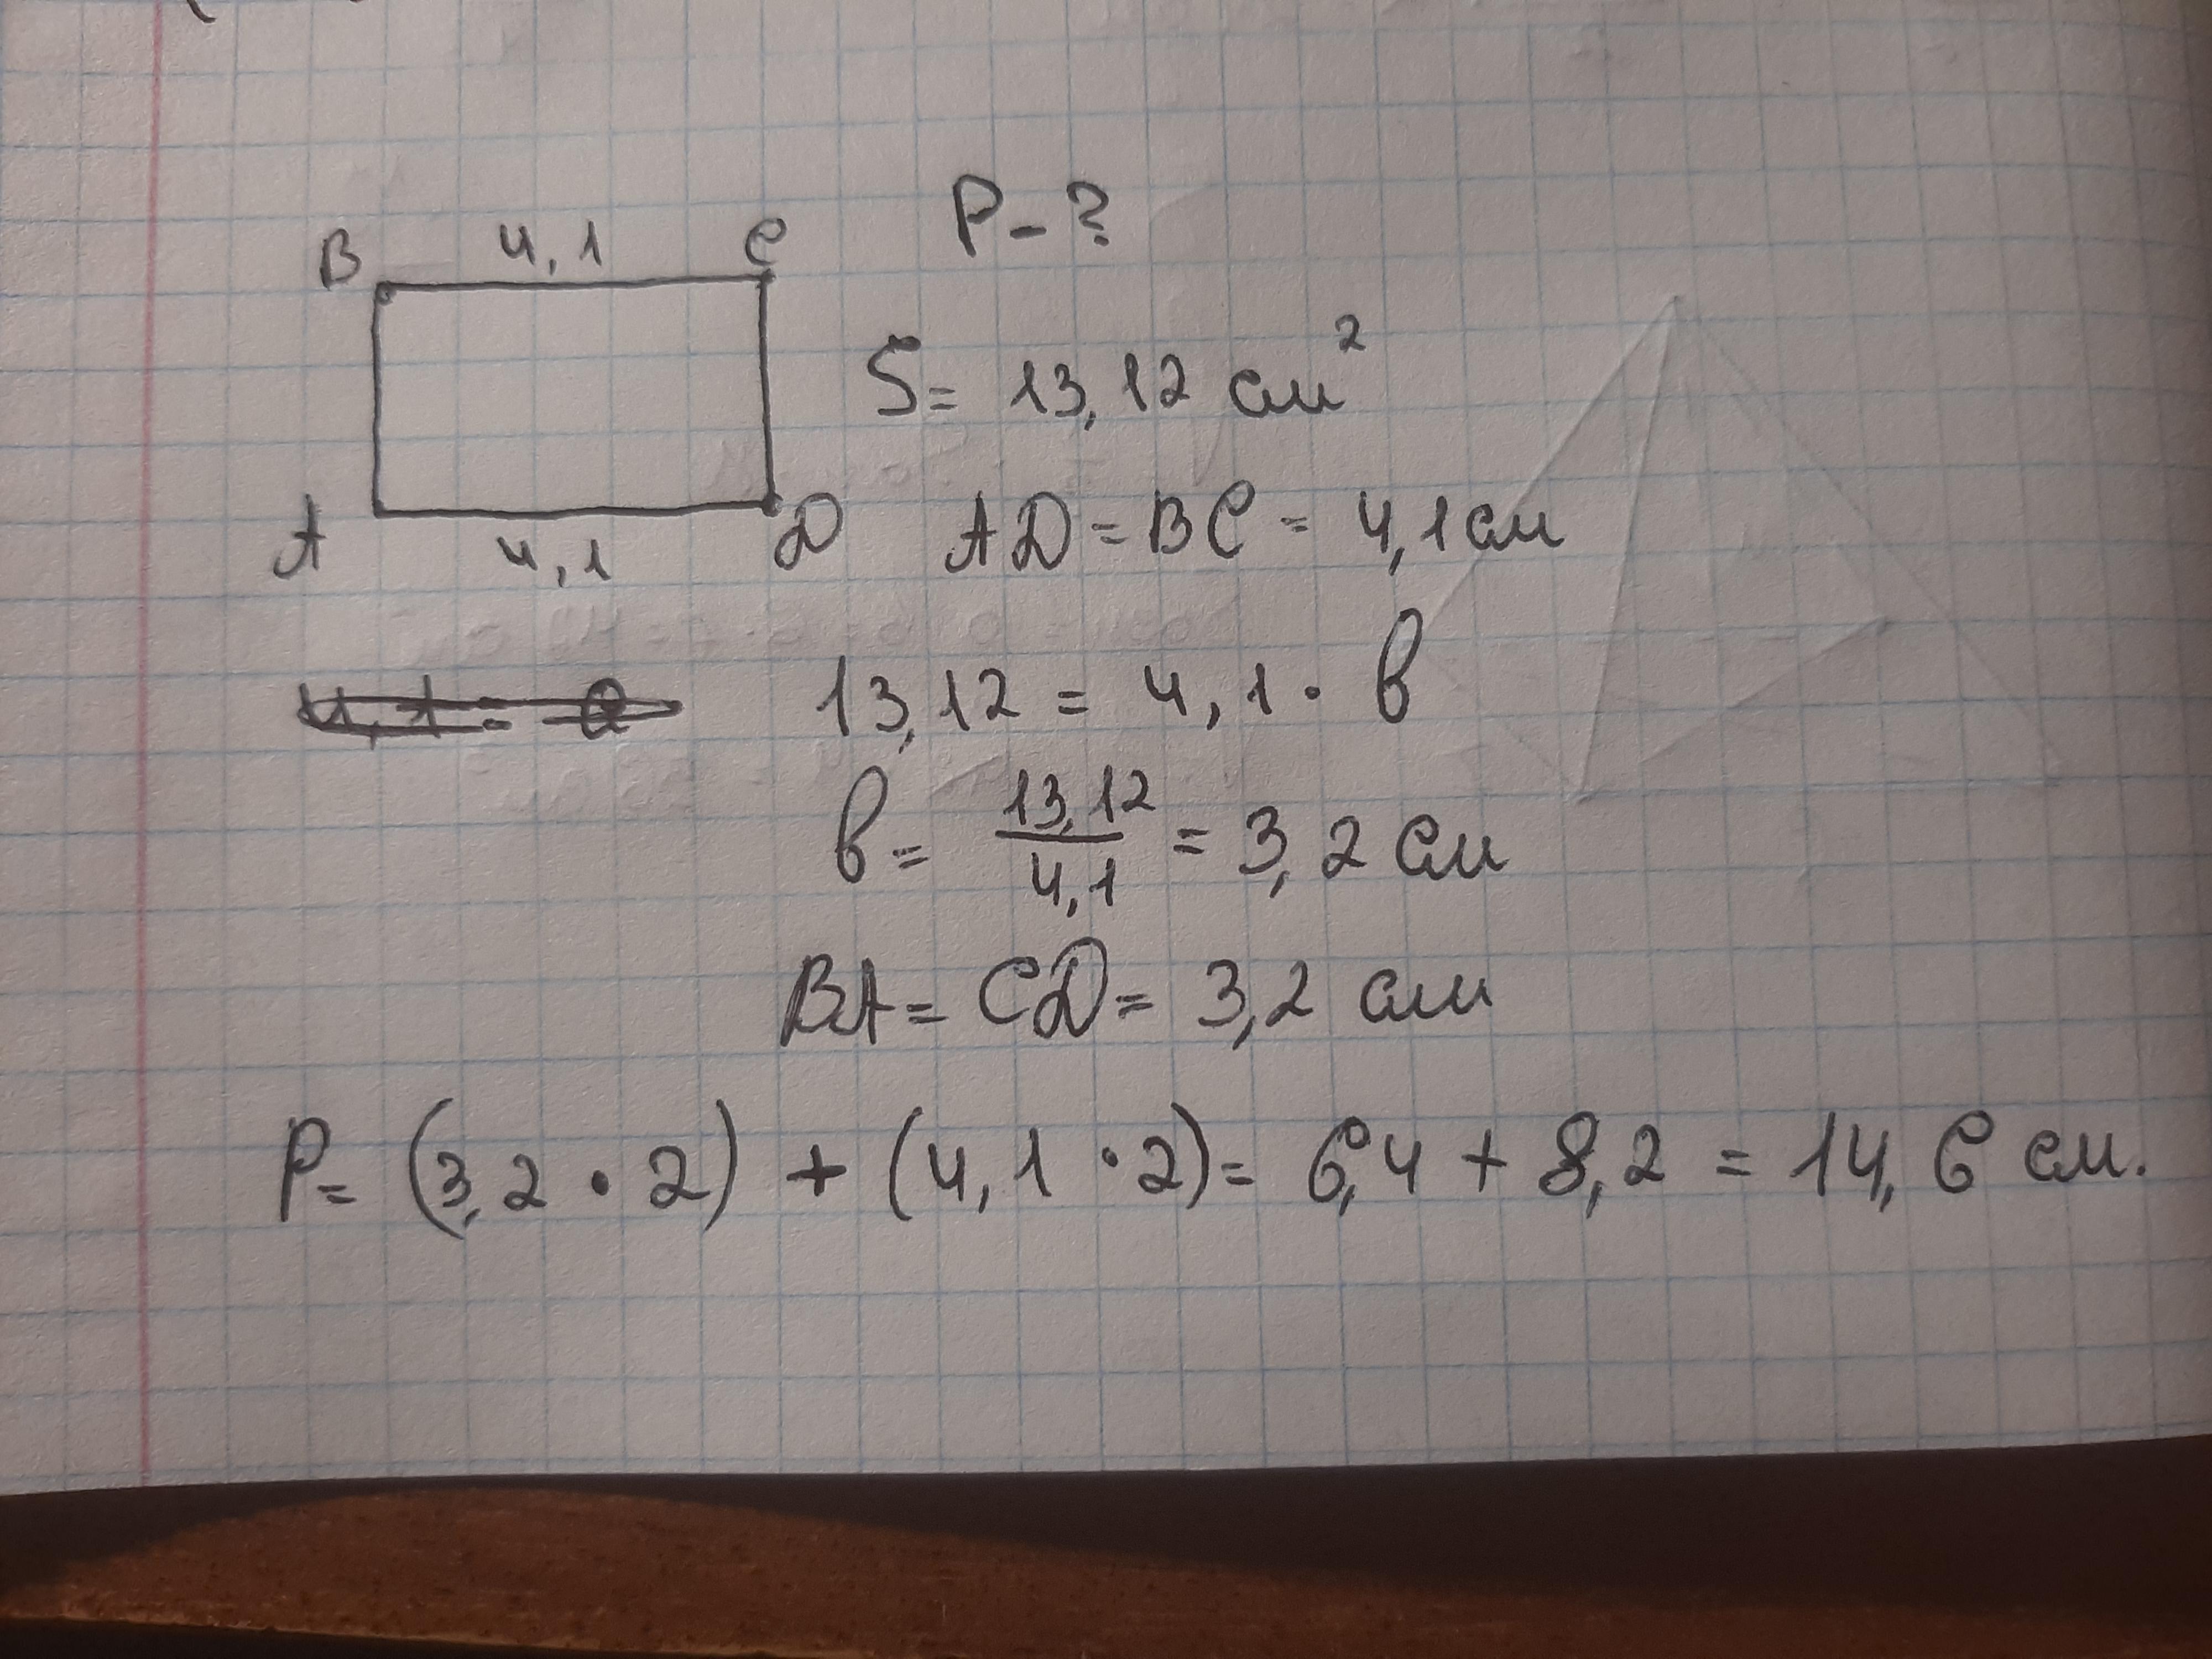 P - ?
B 4,1 C
S = 13,12 см²
A 4,1 D
AD = BC = 4,1 см
13,12 = 4,1 · в
в = 13,12 / 4,1 = 3,2 см
BA = CD = 3,2 см
P = (3,2 · 2) + (4,1 · 2) = 6,4 + 8,2 = 14,6 см.